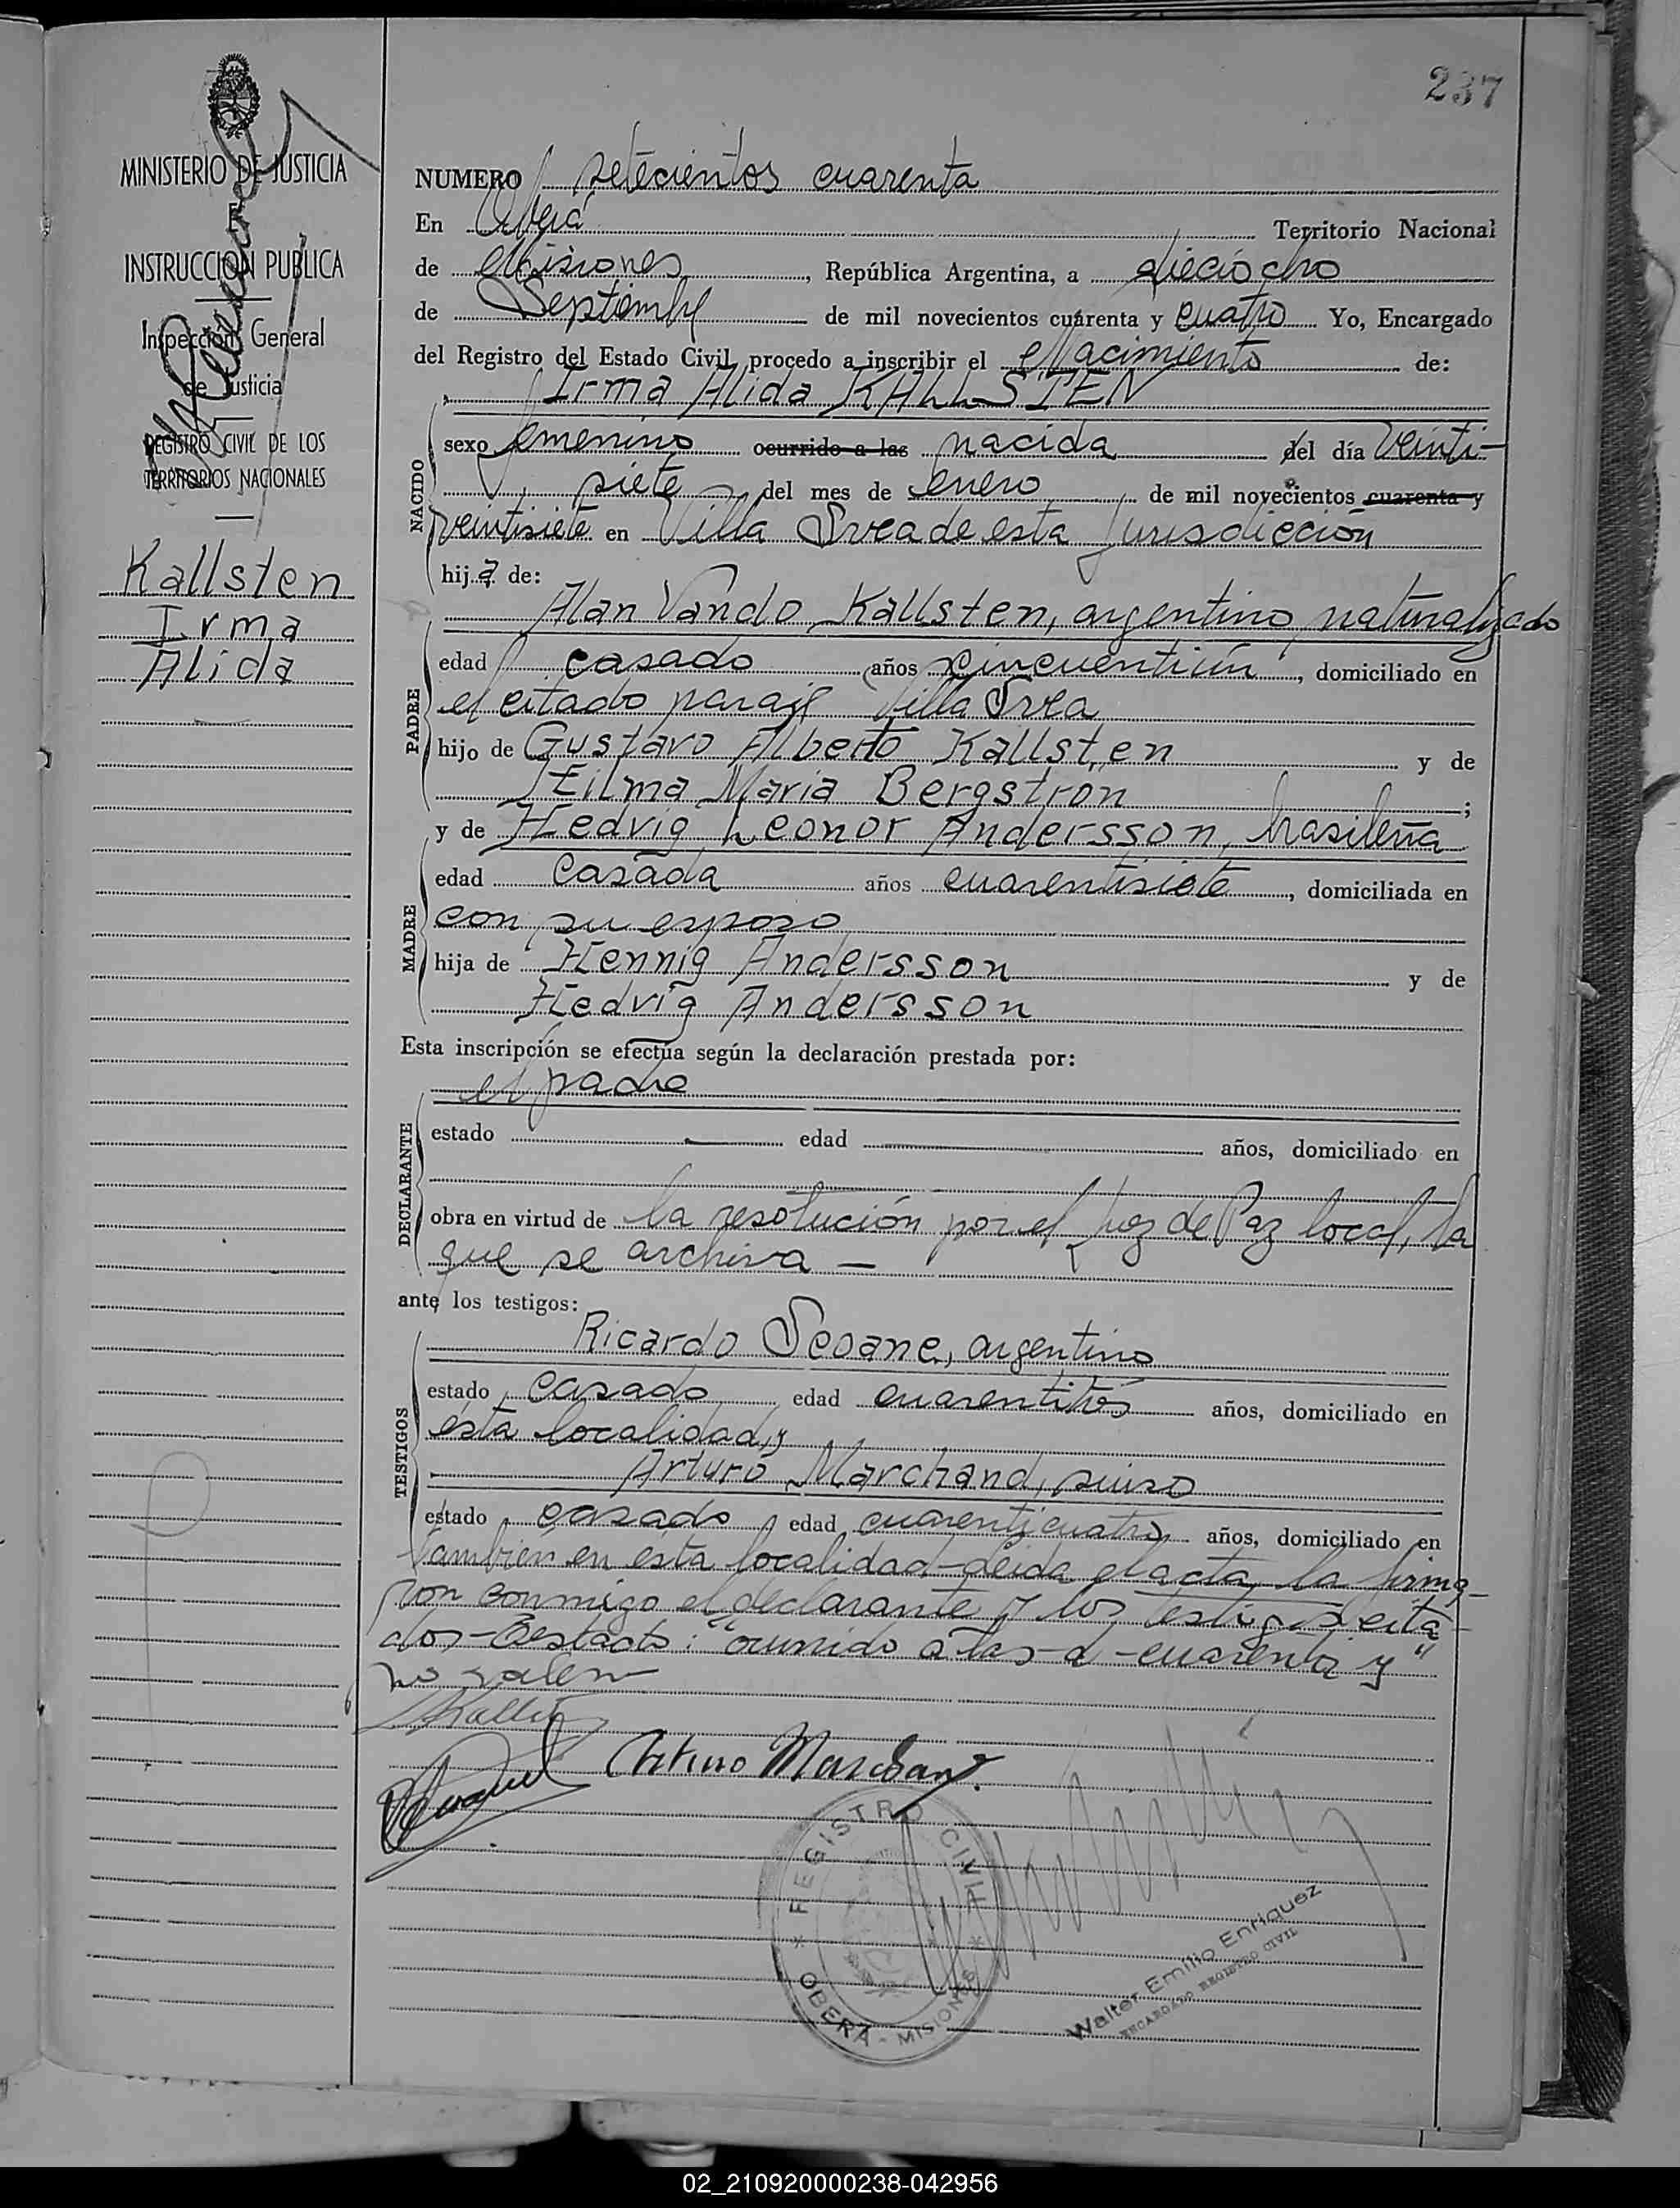 237
MINISTERIO DE JUSTICIA
E
INSTRUCCION PUBLICA
Inspección General
de Justicia
REGISTRO CIVIL DE LOS
TERRITORIOS NACIONALES
Kallsten
Irma
Alida
NUMERO setecientos cuarenta
En Oberá Territorio Nacional
de Misiones, República Argentina, a dieciocho
de Septiembre de mil novecientos cuarenta y cuatro Yo, Encargado
del Registro del Estado Civil procedo a inscribir el Nacimiento de:
Irma Alida KALLSTEN
NACIDO
sexo femenino ocurrido a las nacida del día veinti-
siete del mes de enero de mil novecientos cuarenta y
veintisiete en Villa Svea de esta jurisdicción
hija de:
PADRE
Alan Vando Kallsten, argentino naturalizado
edad casado años cincuentiún, domiciliado en
el citado paraje Villa Svea
hijo de Gustavo Alberto Kallsten y de
Hilma Maria Bergstron;
MADRE
y de Hedvig Leonor Andersson, brasileña
edad casada años cuarentisiete, domiciliada en
con su esposo
hija de Hennig Andersson y de
Hedvig Andersson
Esta inscripción se efectúa según la declaración prestada por:
DECLARANTE
el padre
estado edad años, domiciliado en
obra en virtud de la resolución por el Juez de Paz local, la
que se archiva —
ante los testigos:
TESTIGOS
Ricardo Seoane, argentino
estado casado edad cuarentitrés años, domiciliado en
esta localidad, y
Arturo Marchand, suizo
estado casado edad cuarenticuatro años, domiciliado en
tambien en esta localidad-leida el acta, la firma-
ron conmigo el declarante y los testigos cita-
dos-Testado: "ocurrido a las-d-cuarenta y"
no valen
Arturo Marchand.
REGISTRO CIVIL
OBERÁ - MISIONES
Walter Emilio Enriquez
ENCARGADO REGISTRO CIVIL
02_210920000238-042956